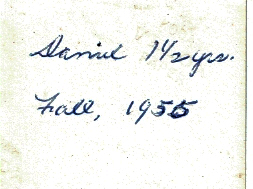 Daniel 1½ yrs.
Fall, 1955